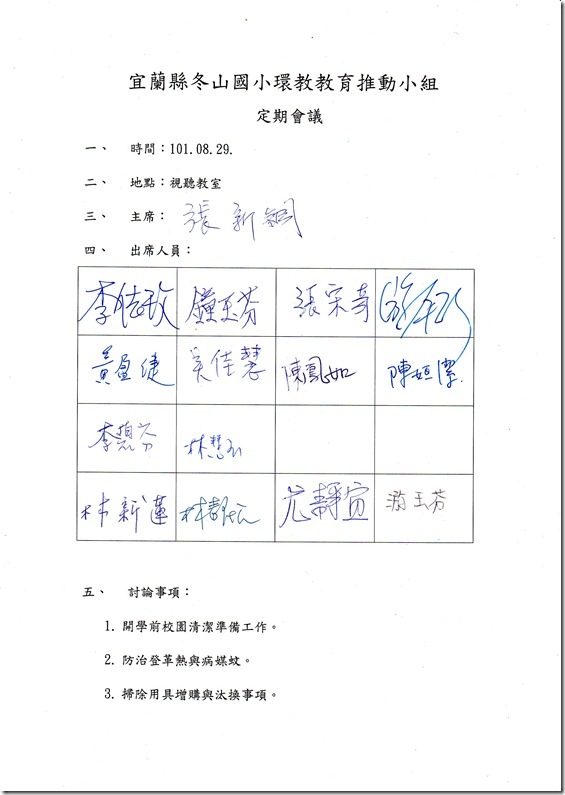 宜蘭縣冬山國小環教教育推動小組
定期會議
一、 時間：101.08.29.
二、 地點：視聽教室
三、 主席： 張新鋼
四、 出席人員：
李佶玫 鐘玉芬 張宗奇
黃盈婕 吳佳慧 陳鳳如 陳姮潔
李碧芬 林慧玉
林新蓮 林靜宜 游玉芬
五、 討論事項：
1. 開學前校園清潔準備工作。
2. 防治登革熱與病媒蚊。
3. 掃除用具增購與汰換事項。